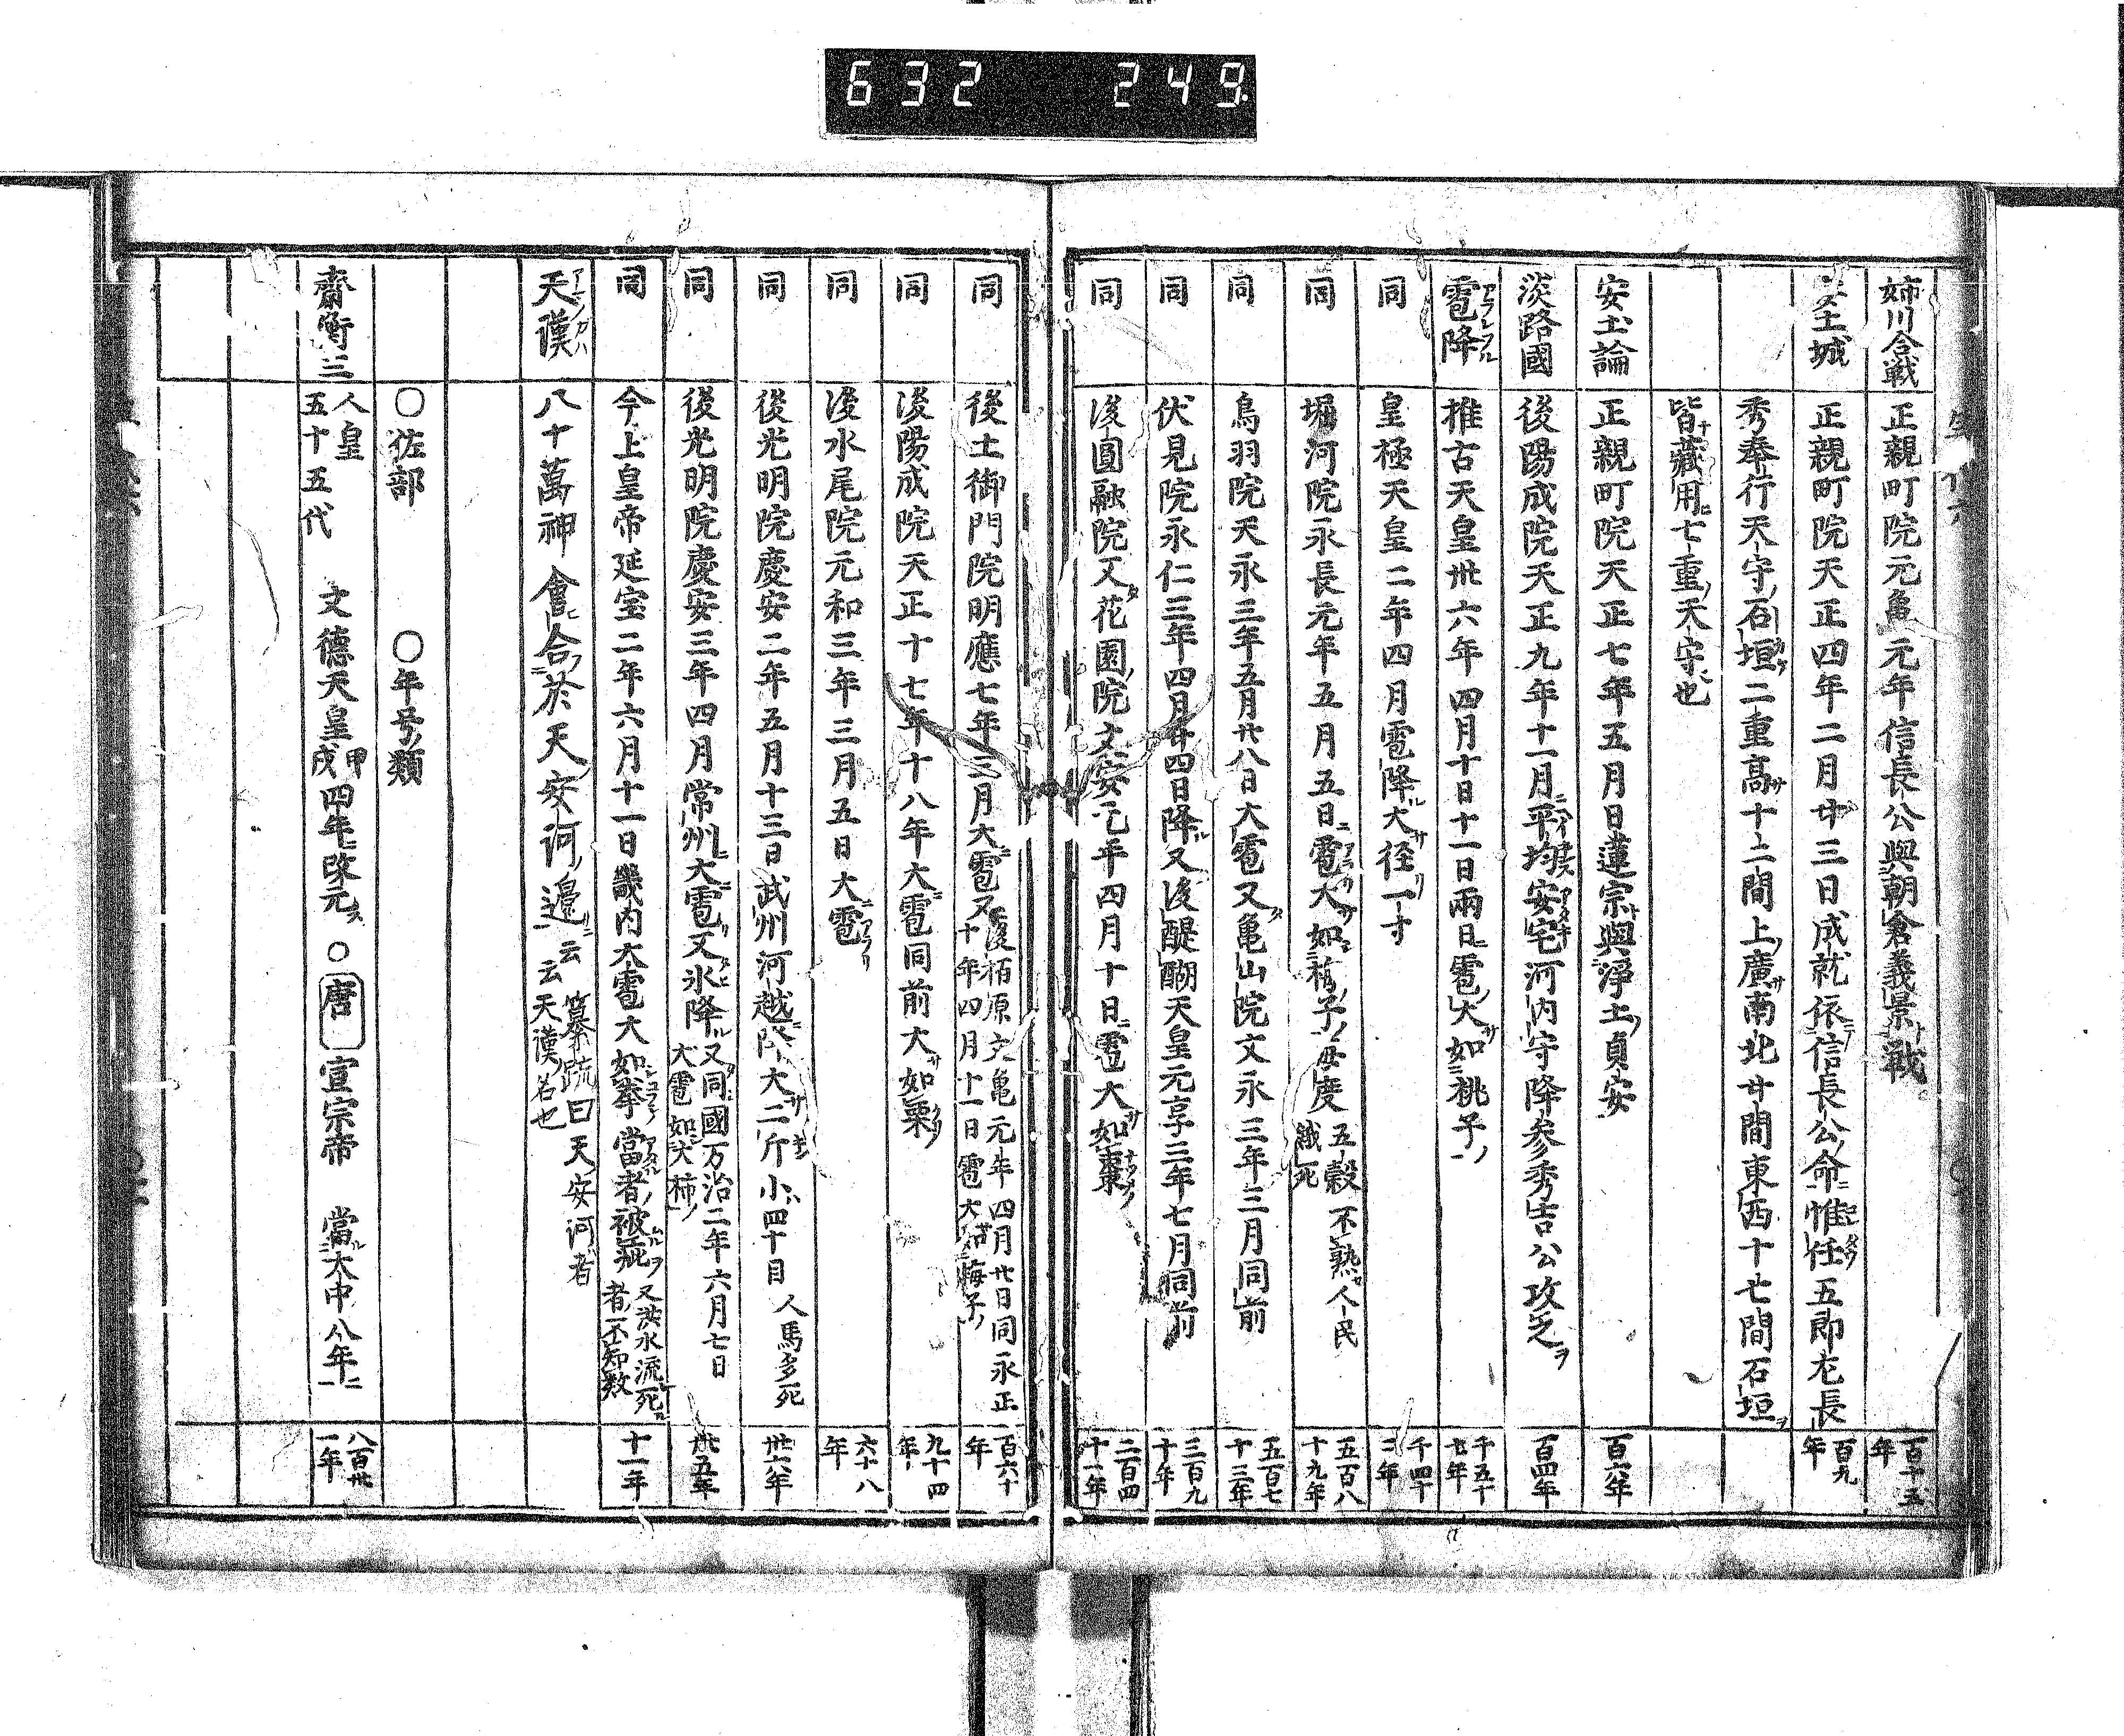 632 249
姉川合戦 正親町院元亀元年信長公與朝倉義景戦 百十五年
土城 正親町院天正四年二月廿三日成就依信長公命惟任五郎左長 百九年
秀奉行天守石垣二重高十二間上廣南北廿間東西十七間石垣
皆藏用七重天守也
安土論 正親町院天正七年五月日蓮宗與淨土貞安 百六年
淡路國 後陽成院天正九年十一月平均安宅河内守降参秀吉公攻之 百四年
雹降 推古天皇卅六年四月十日十一日兩日雹大如桃子 千五十七年
同 皇極天皇二年四月雹降大径一寸 千四十二年
同 堀河院永長元年五月五日雹大如梅子毎度五穀不熟人民餓死 五百八十九年
同 鳥羽院天永三年五月廿八日大雹又亀山院文永三年三月同前 五百七十三年
同 伏見院永仁三年四月廿四日降又後醍醐天皇元享三年七月同前 三百九十年
同 後圓融院又花園院文安元年四月十日雹大如棗 二百四十一年
同 後土御門院明應七年三月大雹又後栢原文亀元年四月廿日同永正十年四月十一日雹大如梅子 百六十年
同 後陽成院天正十七年十八年大雹同前大如栗 九十四年
同 後水尾院元和三年三月五日大雹 六十八年
同 後光明院慶安二年五月十三日武州河越降大二斤小四十目人馬多死 卅六年
同 後光明院慶安三年四月常州大雹又氷降又同國万治二年六月七日大雹如大柿 卅五年
同 今上皇帝延宝二年六月十一日畿内大雹大如拳當者被疵又洪水流死者不知数 十一年
天漢 八十萬神會合於天安河邉云云纂疏曰天安河者天漢名也
〇佐部 〇年号類
齋衡三 人皇五十五代 文德天皇甲戌四年改元 〇唐 宣宗帝 當大中八年 八百卅一年